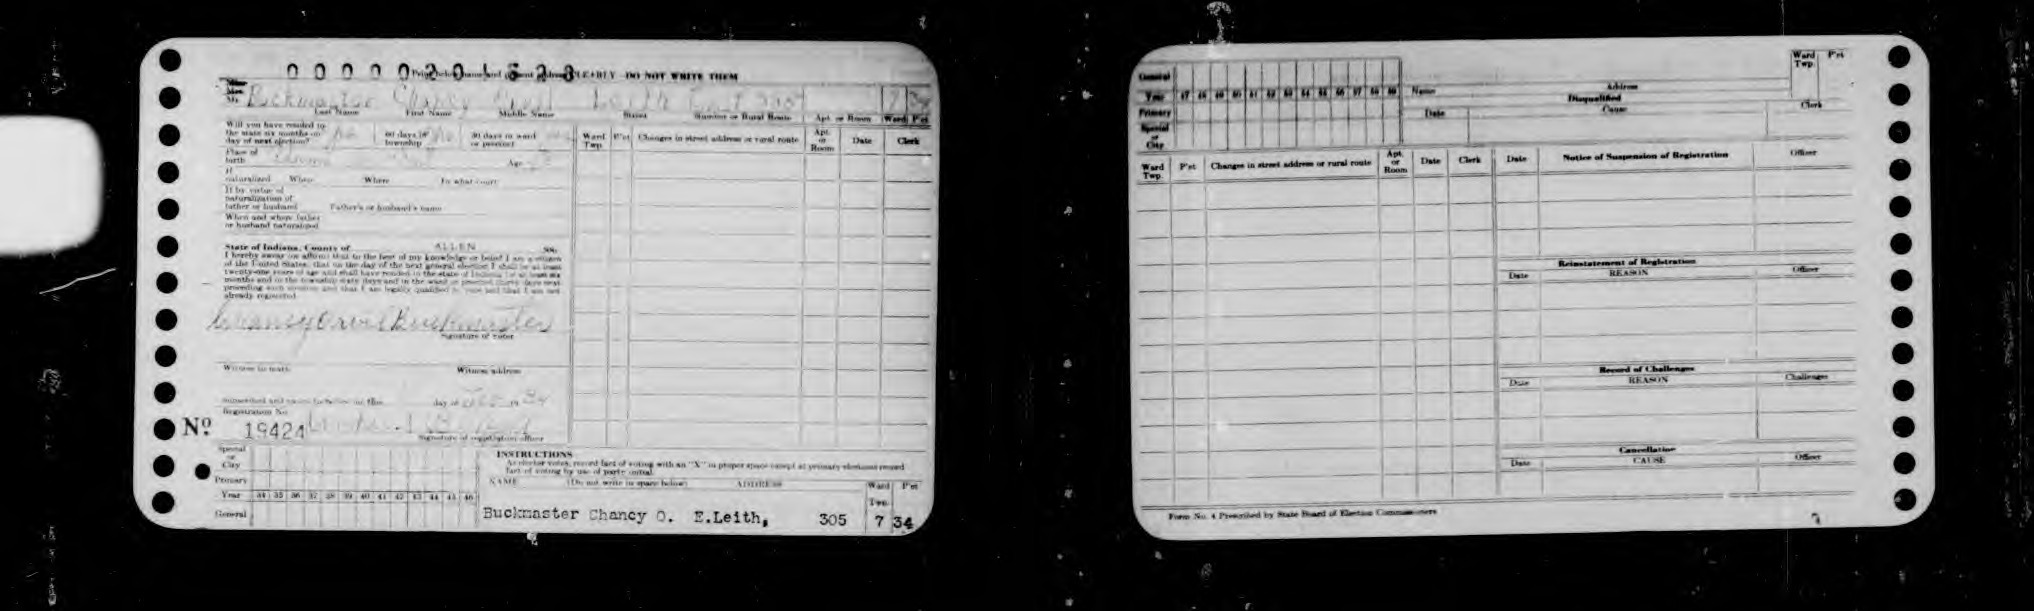 00000201523
Print below name and present address CLEARLY DO NOT WRITE THEM
Miss
Mrs.
Mr. Buckmaster Chancy Orvil Leith East 305 7 34
Last Name First Name Middle Name Street Number or Rural Route Apt. or Room Ward P'ct
Will you have resided in
the state six months on
day of next election?
60 days in
township
30 days in ward
or precinct
Place of
birth
Age
If
naturalized When Where In what court
If by virtue of
naturalization of
father or husband Father's or husband's name
When and where father
or husband naturalized
State of Indiana, County of ALLEN ss.
I hereby swear or affirm that to the best of my knowledge or belief I am a citizen
of the United States, that on the day of the next general election I shall be at least
twenty-one years of age and shall have resided in the state of Indiana for at least six
months and in the township sixty days and in the ward or precinct thirty days next
preceding such election and that I am legally qualified to vote and that I am not
already registered.
Chancy Orvil Buckmaster
Signature of voter
Witness to mark Witness address
Subscribed and sworn to before me this day of 1934
Registration No.
Nº 19424
Signature of registration officer
Ward
Twp. P'ct Changes in street address or rural route Apt.
or
Room Date Clerk
Special
or
City
Primary
Year 34 35 36 37 38 39 40 41 42 43 44 45 46
General
INSTRUCTIONS
As elector votes, record fact of voting with an "X" in proper space except at primary elections record
fact of voting by use of party initial.
NAME (Do not write in space below) ADDRESS Ward
Twp. P'ct
Buckmaster Chancy O. E.Leith, 305 7 34
General
Year 47 48 49 50 51 52 53 54 55 56 57 58 59
Primary
Special
or
City
Name Address Ward
Twp. P'ct
Disqualified
Date Cause Clerk
Ward
Twp. P'ct Changes in street address or rural route Apt.
or
Room Date Clerk
Date Notice of Suspension of Registration Officer
Reinstatement of Registration
Date REASON Officer
Record of Challenges
Date REASON Challenger
Cancellation
Date CAUSE Officer
Form No. 4 Prescribed by State Board of Election Commissioners